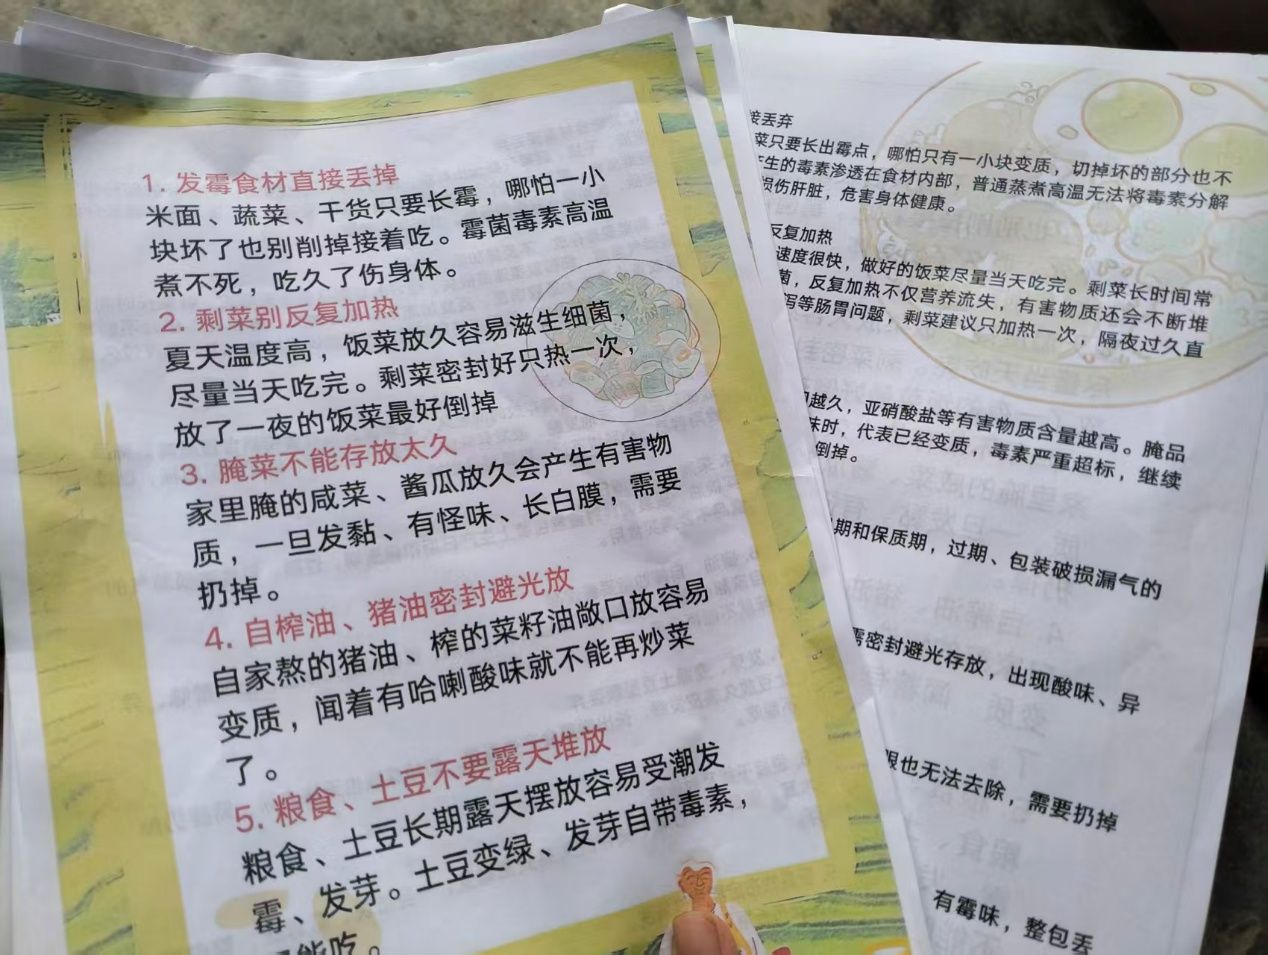 1. 发霉食材直接丢掉
米面、蔬菜、干货只要长霉，哪怕一小
块坏了也别削掉接着吃。霉菌毒素高温
煮不死，吃久了伤身体。
2. 剩菜别反复加热
夏天温度高，饭菜放久容易滋生细菌，
尽量当天吃完。剩菜密封好只热一次，
放了一夜的饭菜最好倒掉
3. 腌菜不能存放太久
家里腌的咸菜、酱瓜放久会产生有害物
质，一旦发黏、有怪味、长白膜，需要
扔掉。
4. 自榨油、猪油密封避光放
自家熬的猪油、榨的菜籽油敞口放容易
变质，闻着有哈喇酸味就不能再炒菜
了。
5. 粮食、土豆不要露天堆放
粮食、土豆长期露天摆放容易受潮发
霉、发芽。土豆变绿、发芽自带毒素，
能吃。
接丢弃
菜只要长出霉点，哪怕只有一小块变质，切掉坏的部分也不
产生的毒素渗透在食材内部，普通蒸煮高温无法将毒素分解
损伤肝脏，危害身体健康。
反复加热
速度很快，做好的饭菜尽量当天吃完。剩菜长时间常
菌，反复加热不仅营养流失，有害物质还会不断堆
泻等肠胃问题，剩菜建议只加热一次，隔夜过久直
越久，亚硝酸盐等有害物质含量越高。腌品
味时，代表已经变质，毒素严重超标，继续
倒掉。
期和保质期，过期、包装破损漏气的
需密封避光存放，出现酸味、异
也无法去除，需要扔掉
有霉味，整包丢